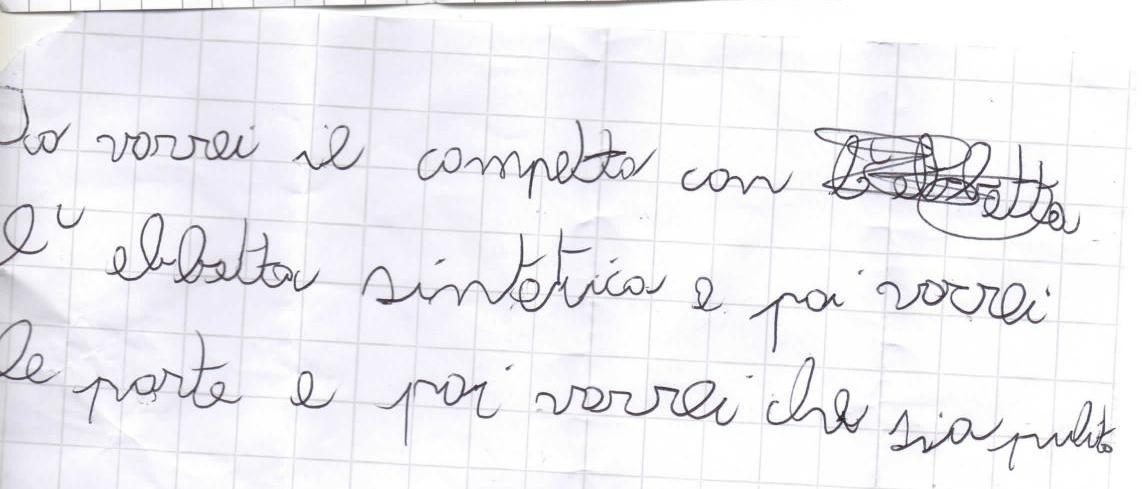 Io vorrei il competto con
l' ebbetta sintetica e poi vorrei
le porte e poi vorrei che sia pulito